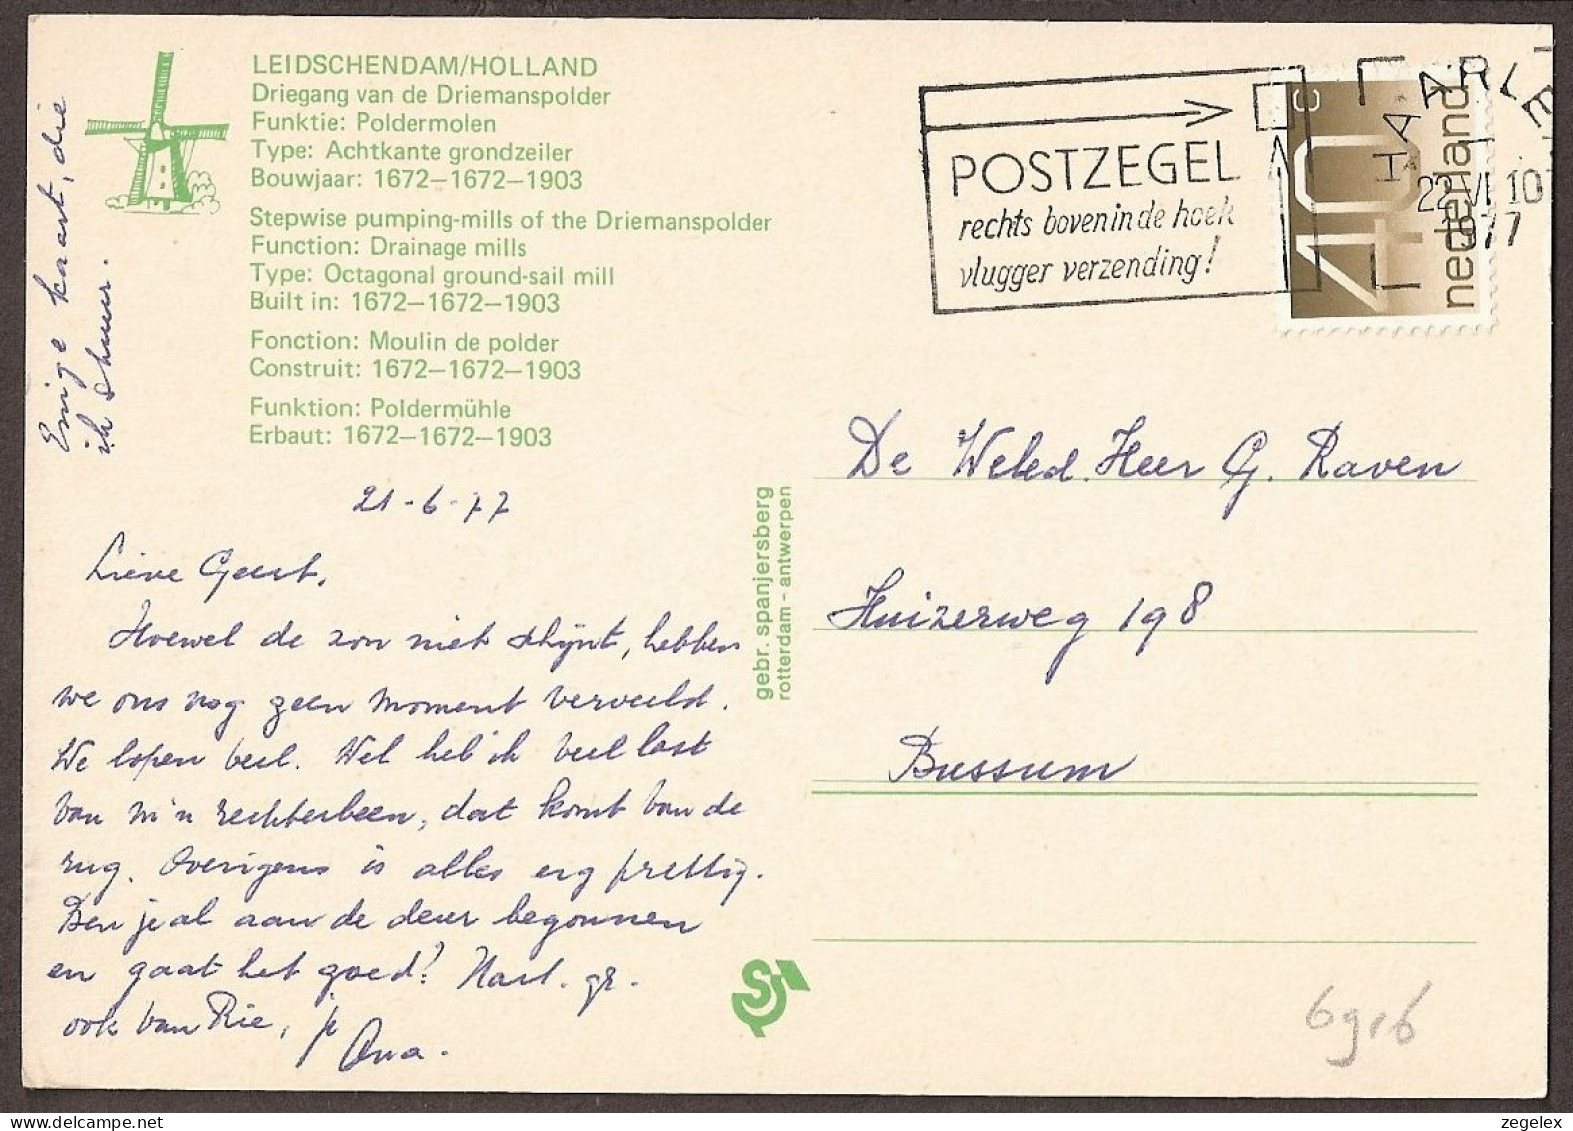 LEIDSCHENDAM/HOLLAND
Driegang van de Driemanspolder
Funktie: Poldermolen
Type: Achtkante grondzeiler
Bouwjaar: 1672—1672—1903
Stepwise pumping-mills of the Driemanspolder
Function: Drainage mills
Type: Octagonal ground-sail mill
Built in: 1672—1672—1903
Fonction: Moulin de polder
Construit: 1672—1672—1903
Funktion: Poldermühle
Erbaut: 1672—1672—1903
Enige kaart, die
ik stuur.
21-6-77
Lieve Geert,
Hoewel de zon niet schijnt, hebben
we ons nog geen moment verveeld.
We lopen veel. Wel heb ik veel last
van m'n rechterbeen, dat komt van de
rug. Overigens is alles erg prettig.
Ben je al aan de deur begonnen
en gaat het goed? Hart. gr.
ook van Rie, je
gebr. spanjersberg
rotterdam - antwerpen
S
POSTZEGEL
rechts boven in de hoek
vlugger verzending!
HAARLE
22 VI 10
1977
40 c
nederland
De Weled. Heer G. Raven
Huizerweg 198
Bussum
zegelex